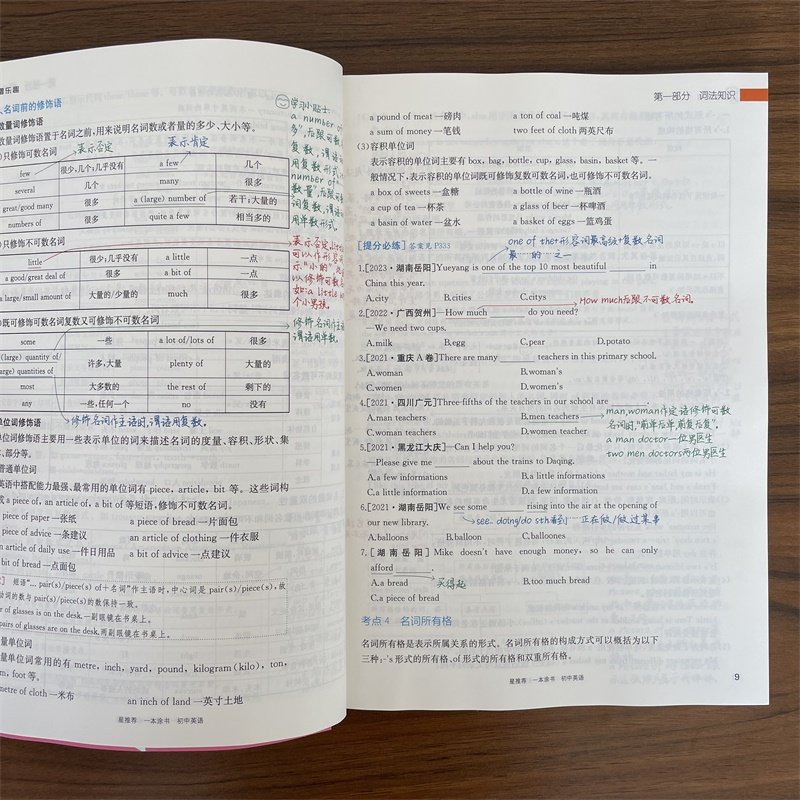 名词前的修饰语
数量词修饰语
数量词修饰语置于名词之前,用来说明名词数或者量的多少、大小等。
只修饰可数名词
表示否定
表示肯定
few 很少,几个;几乎没有 a few 几个
several 几个 many 很多
great/good many 很多 a (large) number of 若干;大量的
numbers of 很多 quite a few 相当多的
只修饰不可数名词
little 很少;几乎没有 a little 一点
a good/great deal of 很多 a bit of 一点
a large/small amount of 大量的/少量的 much 很多
既可修饰可数名词复数又可修饰不可数名词
some 一些 a lot of/lots of 很多
(large) quantity of/
(large) quantities of 许多,大量 plenty of 大量的
most 大多数的 the rest of 剩下的
any 一些,任何一个 no 没有
修饰名词作主语时,谓语用复数。
单位词修饰语
单位词修饰语主要用一些表示单位的词来描述名词的度量、容积、形状、集
、部分等。
普通单位词
英语中搭配能力最强、最常用的单位词有 piece, article, bit 等。这些词构
成 a piece of, an article of, a bit of 等短语,修饰不可数名词。
piece of paper 一张纸 a piece of bread 一片面包
piece of advice 一条建议 an article of clothing 一件衣服
an article of daily use 一件日用品 a bit of advice 一点建议
bit of bread 一点面包
短语“… pair(s)/piece(s) of+名词”作主语时,中心词是 pair(s)/piece(s),故
动词的数与 pair(s)/piece(s)的数保持一致。
r of glasses is on the desk. 一副眼镜在书桌上。
pairs of glasses are on the desk. 两副眼镜在书桌上。
量单位词
量单位词常用的有 metre, inch, yard, pound, kilogram (kilo), ton,
m, foot 等。
metre of cloth 一米布 an inch of land 一英寸土地
星推荐 一本涂书 初中英语
学习小贴士:
a number of
多”,后跟可数
复数,谓语
用复数形式;
number of
数量”,后跟可数
词复数,谓语
用单数形式。
表示否定,little
可以作形容词
示“小的”,
以修饰可数名
如:a little
个小男孩。
修饰名词作主语
谓语用单数。
第一部分 词法知识
a pound of meat 一磅肉 a ton of coal 一吨煤
a sum of money 一笔钱 two feet of cloth 两英尺布
(3)容积单位词
表示容积的单位词主要有 box, bag, bottle, cup, glass, basin, basket 等。一
般情况下,表示容积的单位词既可修饰复数可数名词,也可修饰不可数名词。
a box of sweets 一盒糖 a bottle of wine 一瓶酒
a cup of tea 一杯茶 a glass of beer 一杯啤酒
a basin of water 一盆水 a basket of eggs 一篮鸡蛋
[提分必练] 答案见 P333
one of the+形容词最高级+复数名词
最……的……之一
1.[2023·湖南岳阳]Yueyang is one of the top 10 most beautiful ______ in
China this year.
A.city B.cities C.citys
How much后跟不可数名词。
2.[2022·广西贺州]—How much ______ do you need?
—We need two cups.
A.milk B.egg C.pear D.potato
3.[2021·重庆A卷]There are many ______ teachers in this primary school.
A.woman B.woman's
C.women D.women's
4.[2021·四川广元]Three-fifths of the teachers in our school are ______.
A.man teachers B.men teachers
C.woman teachers D.women teacher
man,woman作定语修饰可数
名词时,“前单后单,前复后复”。
a man doctor一位男医生
two men doctors两位男医生
5.[2021·黑龙江大庆]—Can I help you?
—Please give me ______ about the trains to Daqing.
A.a few informations B.a little informations
C.a little information D.a few information
6.[2021·湖南岳阳]We see some ______ rising into the air at the opening of
our new library.
see. doing/do sth看到……正在做/做过某事
A.balloons B.balloon C.balloones
7.[湖南岳阳] Mike doesn't have enough money, so he can only
afford ______.
买得起
A.a bread B.too much bread
C.a piece of bread
考点 4 名词所有格
名词所有格是表示所属关系的形式。名词所有格的构成方式可以概括为以下
三种:-'s 形式的所有格、of 形式的所有格和双重所有格。
星推荐 一本涂书 初中英语
9